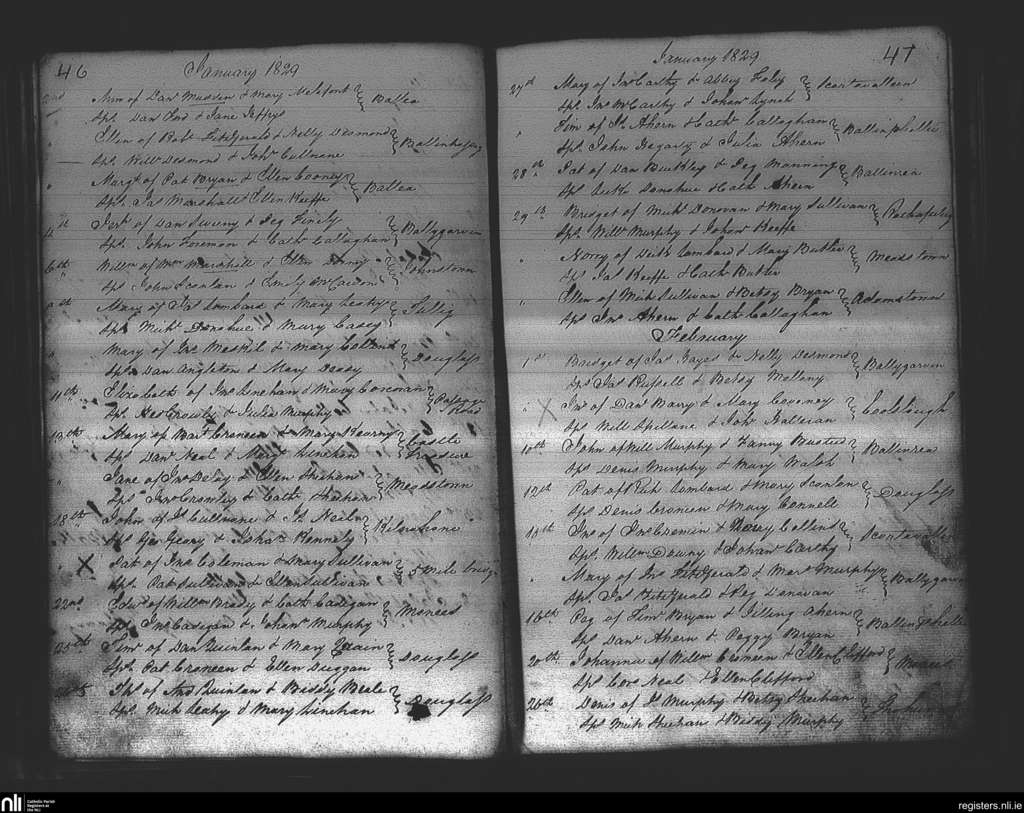 46 January 1829
2nd Ann of Danl Madden & Mary Melefont Ballea
Sps Dan Ford & Jane Jeffrys
" Ellen of Robt Fitzgerald & Nelly Desmond
Sps Willm Desmond & Johа Cullnane
" Margt of Pat Bryan & Ellen Cooney Ballea
Sps Jas Marshall & Ellen Keeffe
of Dan Sweeny & Peg Finely Ballygarvan
Sps John Foreman & Cathe Callaghan
6th Willm of Wm Marshall & Ellen Johnstown
Sps John Scanlan & Emily McCadon
Mary of Pat Lombard & Mary Leahy
Sps Michl Donohue & Mary Casey
" Mary of Jno Meskil & Mary Douglass
Sps Dan Angleton & Mary Dessy
11th Elizabeth of Jno Linehan & Mary Corcoran Passage Road
Sps Crowly & Julia Murphy
13th Mary of Bart Croneen & Mary Kearny Castle
Sps Danl Neal & Mary Linehan
" Jane of Jno Delay & Ellen Shehan Meadstown
Sps Jno Crowley & Cath Shehan
18th John of Jas Cullnane & Neil
Sps Geo Geary & Johan Kennely
" X Pat of Jno Coleman & Mary Sullivan 5 Mile bridge
Sps Pat Sullivan & Ellen Sullivan
22nd Edwd of Willm Brady & Cath Cadigan Monees
Sps Jno Cadigan & Johan Murphy
25th Tim of Dan Quinlan & Mary Douglass
Sps Pat Croneen & Ellen Duggan
of Quinlan & Biddy Beale Douglass
Sps Mich Leahy & Mary Linehan
January 1829 47
27th Mary of Jno Carthy & Abby Foley Scartavalleen
Sps Jno McCarthy & Johan Lynch
" Tim of Jas Ahern & Cath Callaghan Ballinphellic
Sps John Degary & Julia Ahern
28th Pat of Dan Buckley & Peg Manning Ballinrea
Sps Donohue & Cath Ahern
29th Bridget of Michl Donovan & Mary Sullivan
Sps Willm Murphy & Johan Keeffe
" Norry of Lombard & Mary Butler Meadstown
Sps Jas Keeffe & Cath Butler
" Ellen of Mich Sullivan & Betsy Bryan Adamstown
Sps Jno Ahern & Cath Callaghan
February
1st Bridget of Jas Hayes & Nelly Desmond Ballygarvin
Sps Jas Russell & Betsy Mollony
" X Jno of Danl Barry & Mary Coveney
Sps Will Spillane & Joh Halleran
10th John of Will Murphy & Fanny Busteed Ballinrea
Sps Denis Murphy & Mary Walsh
12th Pat of Rich Lombard & Mary Scanlan Douglass
Sps Denis Croneen & Mary Connell
15th Jno of Jno Cremin & Norry Collins Scartavallen
Sps Willm Downy & Johan Carthy
" Mary of Jno Fitzgerald & Mary Murphy Ballygarvan
Sps Jas Fitzgerald & Peg Donovan
16th Peg of Tim Bryan & Ahern Ballinphellic
Sps Danl Ahern & Peggy Bryan
20th Johanna of Willm Croneen & Ellen Clifford
Sps Cors Neal & Ellen Clifford
26th Denis of J. Murphy & Betsy Sheehan
Sps Mich Sheehan & Biddy Murphy
nli Catholic Parish Registers at the NLI
registers.nli.ie